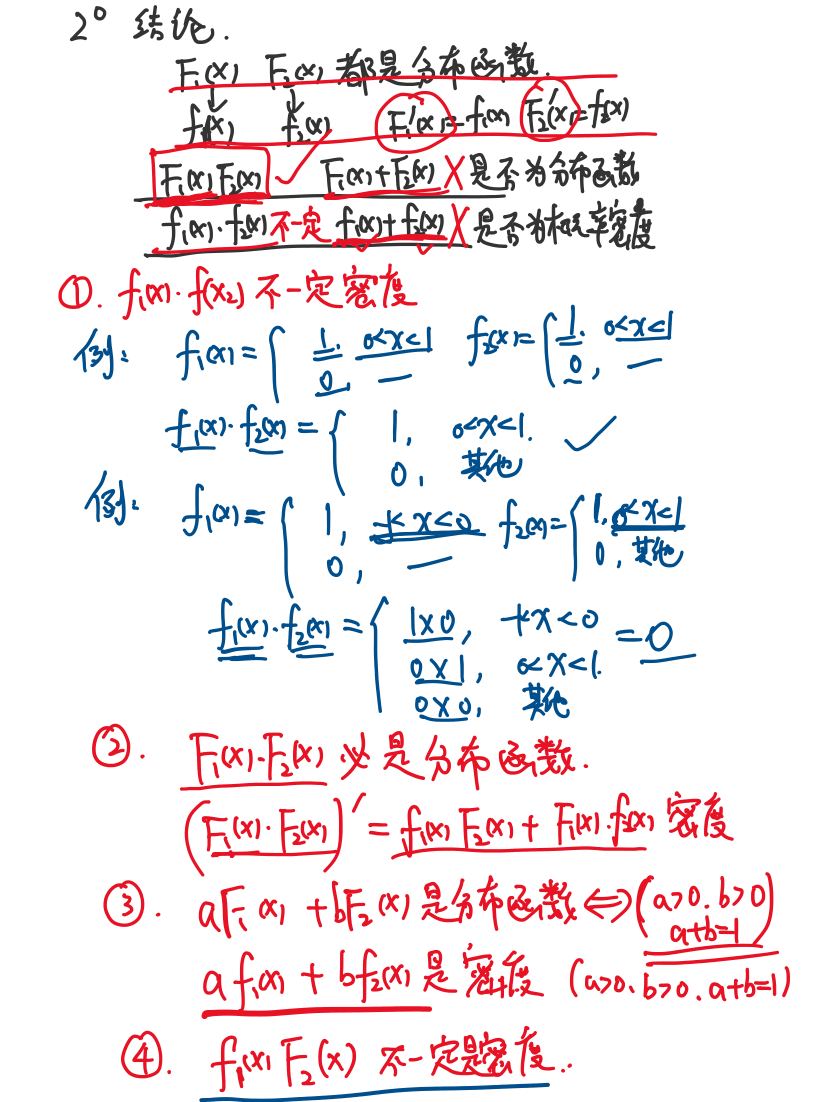 2° 结论.
F₁(x) F₂(x) 都是分布函数.
f₁(x) f₂(x) F₁'(x)=f₁(x) F₂'(x)=f₂(x)
F₁(x)F₂(x) ✓ F₁(x)+F₂(x) X 是否为分布函数
f₁(x)·f₂(x) 不一定 f₁(x)+f₂(x) X 是否为概率密度
①. f₁(x)·f(x₂) 不一定密度
例: f₁(x)={ 1. 0<x<1 f₂(x)={ 1. 0<x<1
0, — 0, —
f₁(x)·f₂(x)={ 1, 0<x<1. ✓
0, 其他
例: f₁(x)={ 1, -1<x<0 f₂(x)={ 1, 0<x<1
0, — 0, 其他
f₁(x)·f₂(x)={ 1×0, -1<x<0 =0
0×1, 0<x<1.
0×0, 其他
②. F₁(x)·F₂(x) 必是分布函数.
(F₁(x)·F₂(x))'=f₁(x)F₂(x)+F₁(x)·f₂(x) 密度
③. aF₁(x)+bF₂(x) 是分布函数⇔(a>0.b>0
a+b=1)
af₁(x)+bf₂(x) 是密度 (a>0.b>0.a+b=1)
④. f₁(x)F₂(x) 不一定是密度..